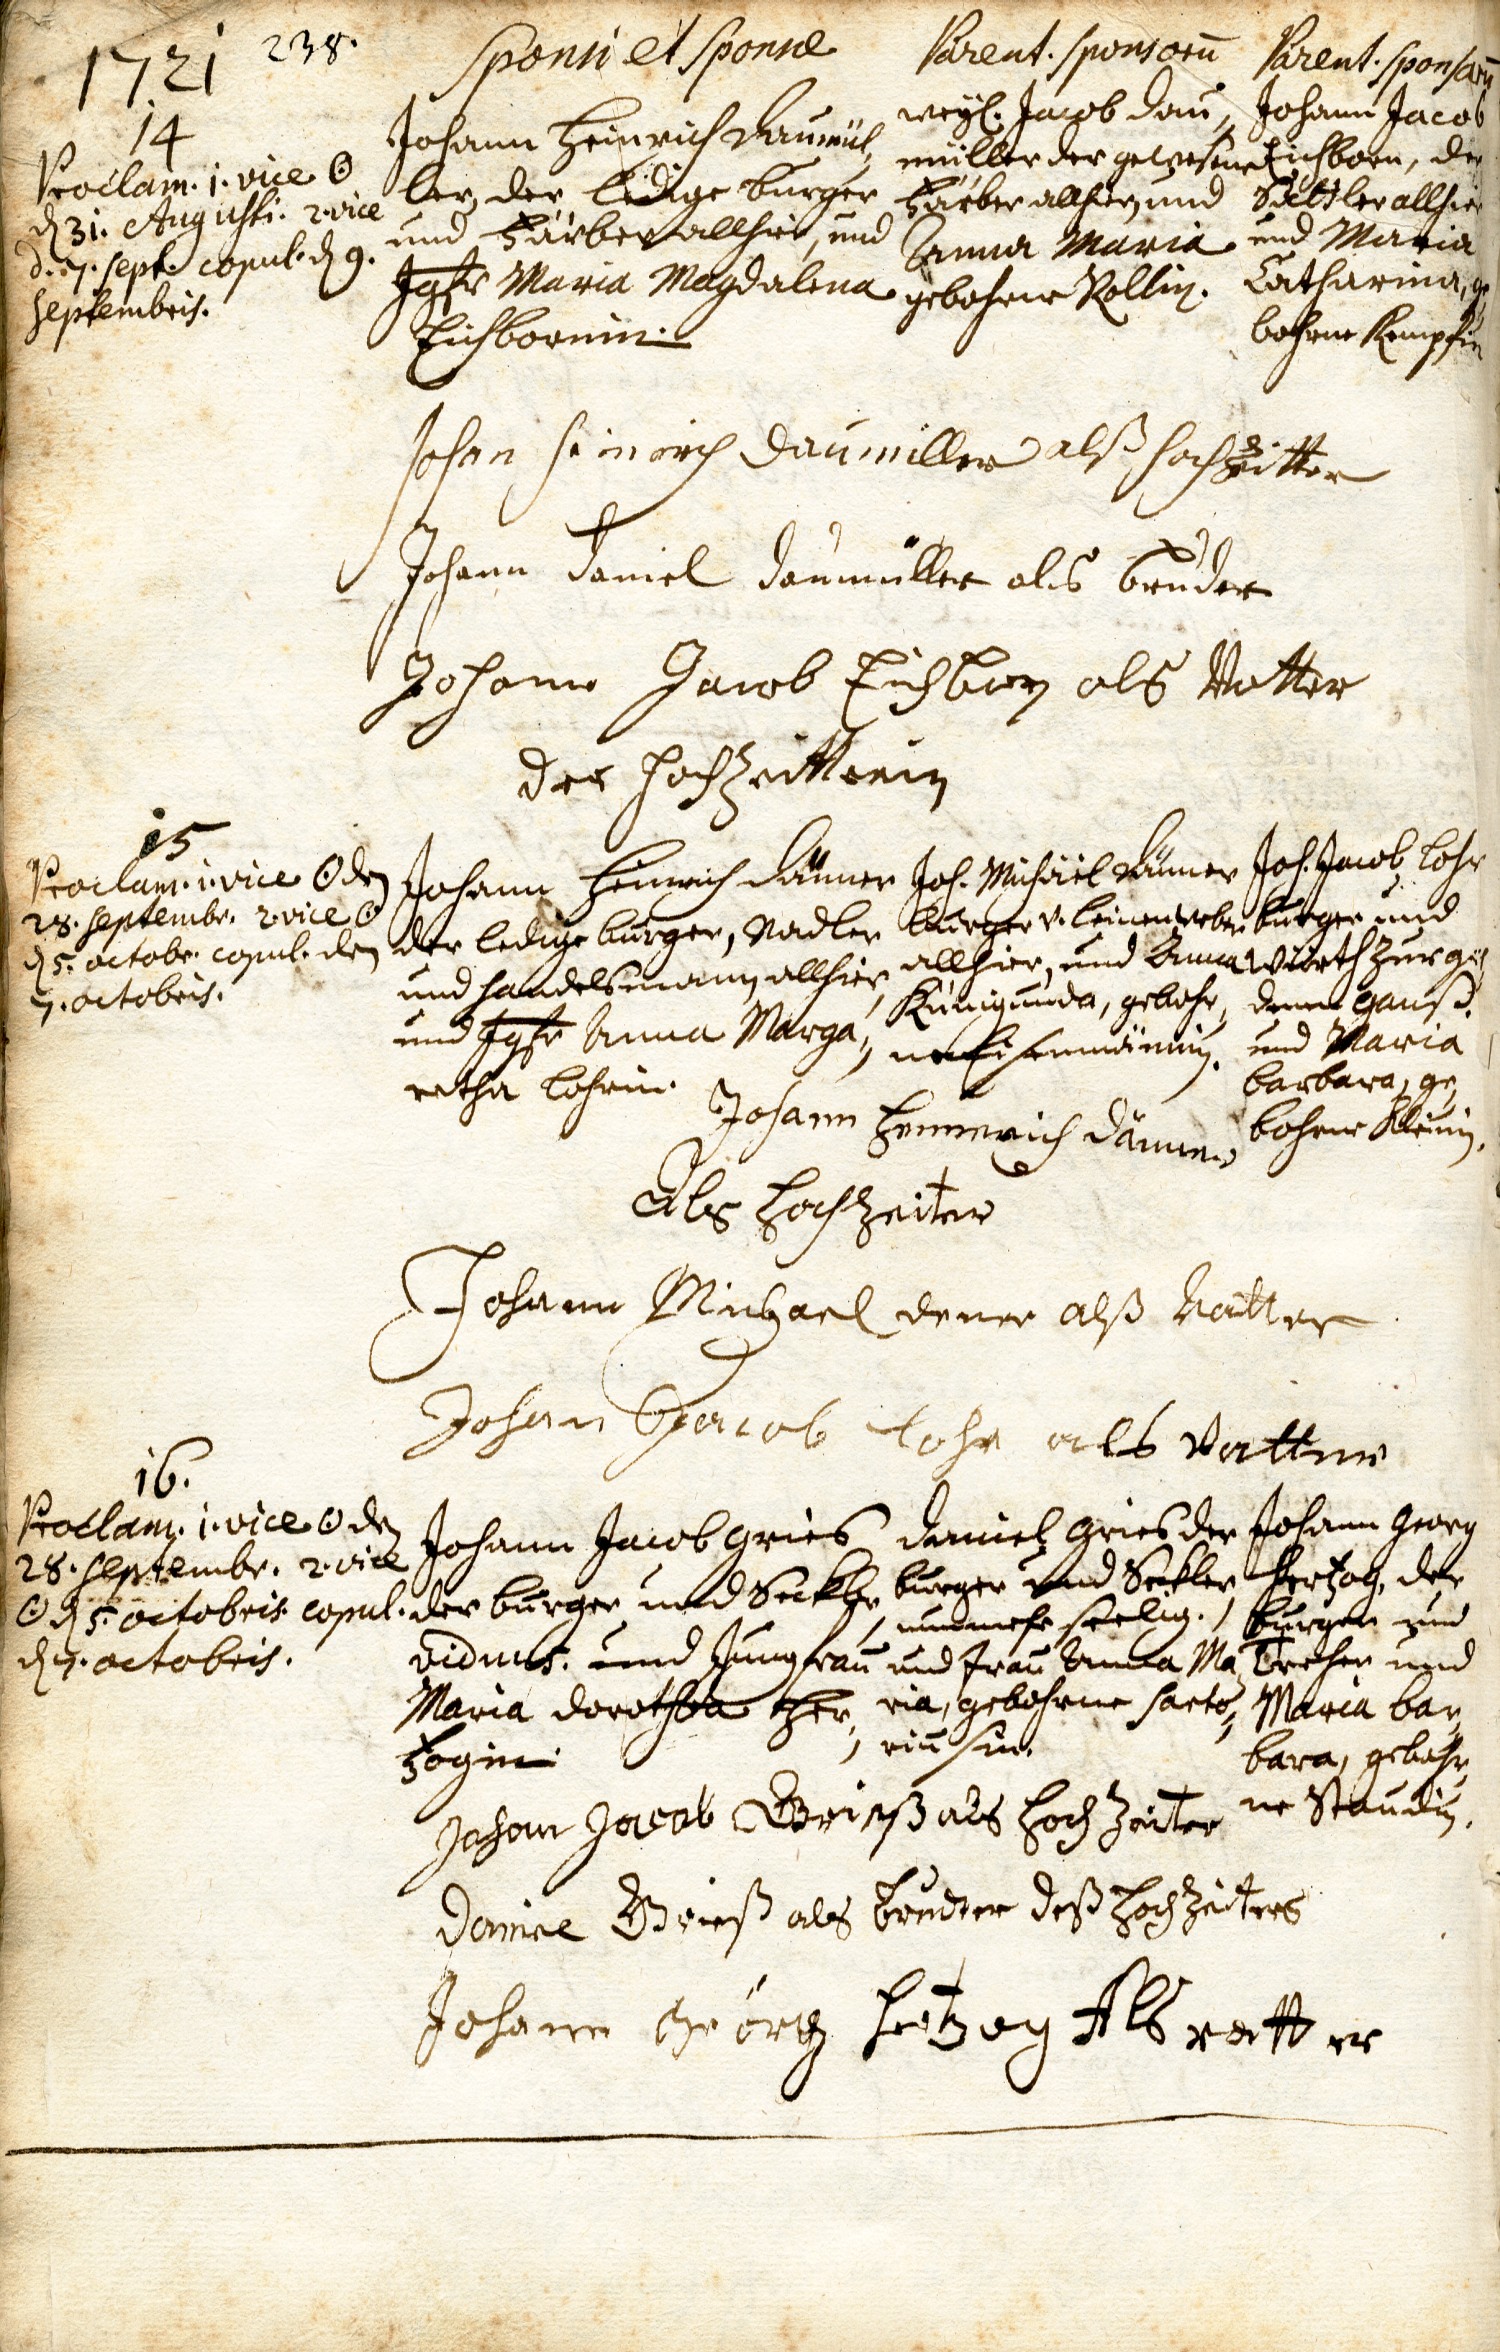 1721
238.
Sponsi et Sponsae
Parent. sponsorū
Parent. sponsarū
14
Proclam. 1. vice ☉
d 31. Augusti. 2. vice
d. 7. sept. copul. d 9.
septembris.
Johann Heinrich Daumül,
ler, der ledige burger
und Färber allhier, und
Jgfr Maria Magdalena
Eichbornin.
weyl. Jacob Dau,
müller der gewesene
Färber allhier, und
Anna Maria
gebohrne Rollin.
Johann Jacob
Eichborn, der
Sattler allhier
und Maria
Catharina, ge
bohrne Kempfin
Johan Heinrich Daumiller alß Hochzeitter
Johann Daniel Daumüller als bruder
Johann Jacob Eichborn als Vatter
der Hochzeitterin
15
Proclam. 1. vice ☉ den
28. septembr. 2. vice ☉
d 5. octobr. copul. den
7. octobris.
Johann Heinrich Dänner
der ledige burger, Nadler
und Handelsmann allhier,
und Jgfr Anna Marga,
retha Lohrin.
Joh. Michäel Dänner
burger v. leinenweber
allhier, und Anna
Künigunda, gebohr,
ne Eisenmännin.
Joh. Jacob Lohr
burger und
Würth zur gol
denen Ganß.
und Maria
barbara, ge,
bohrne Kleinin.
Johann Hennerich Dänner
Als Hochzeiter
Johann Michael dener alß Vatter
Johan Jacob Lohr als Vatter
16.
Proclam. 1. vice ☉ den
28. septembr. 2. vice
☉ d 5. octobris. copul.
d 7. octobris.
Johann Jacob Gries
der burger und Seckler,
viduus. und Jungfrau
Maria Dorothea Her,
tzogin.
Daniel Gries der
burger und Seckler,
nunmehr seelig.
und Frau Anna Ma,
ria, gebohrne Sarto,
riussin.
Johann Georg
Hertzog, der
burger und
Dreher und
Maria bar,
bara, gebohr,
ne Staudin.
Johan Jacob Grieß als Hochzeiter
Daniel Grieß als bruder deß Hochzeiters
Johann Geörg Hertzog Als vatter